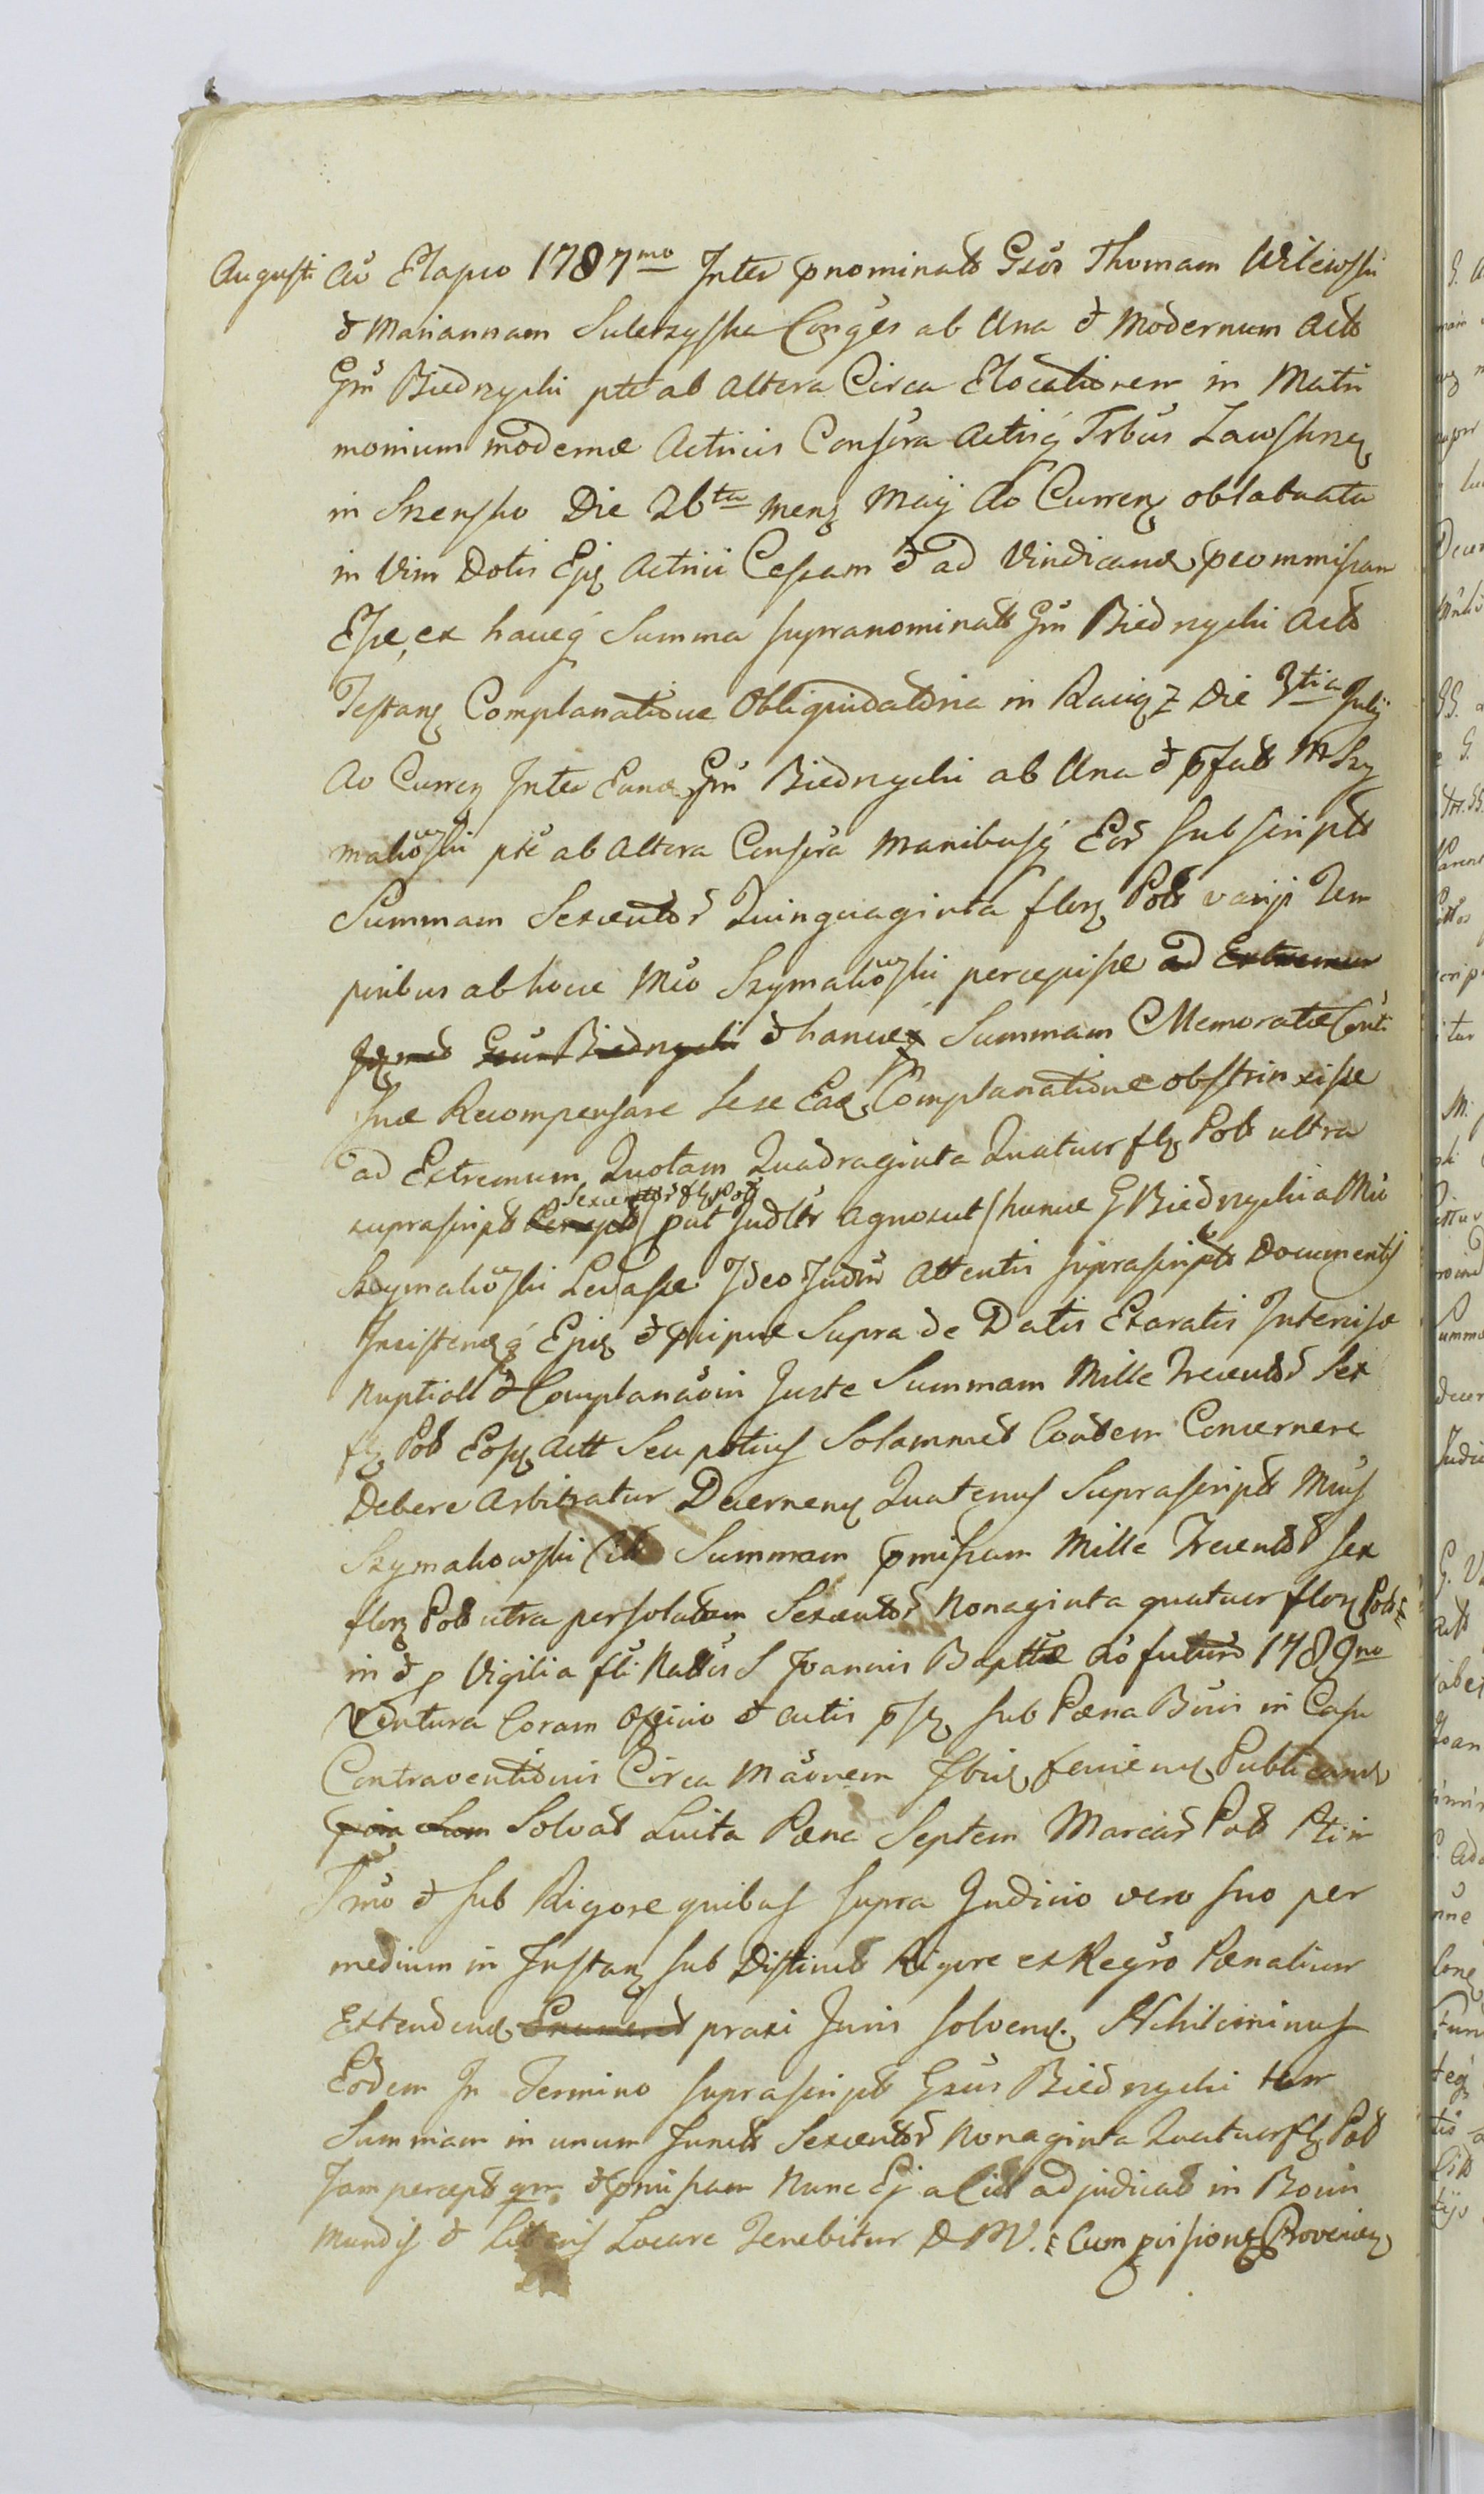 Augusti Aô Elapso 1787mo Inter pnominats Gsôr Thomam Wilewski
et Mariannam Sulerzyska Conges ab Una et Modernum Acts
Gm Biedrzycki pte ab Altera Circa Elocationem in Matri
monium modernæ Actricis Conscra Actisq Trbus Zawskrzn
in Srensko Die 26ta Mens Maij Ao Curren oblatuata
in Vim Dotis Ejq Actrici Cessam et ad Vindicand prommissam
Esse, ex hancq Summa supranominats Gm Biedrzycki Acts
Testans Complanatione Obliquidatoria in Raciąz Die 3tia Julij
Ao Curren Inter Eund Gm Biedrzycki ab Una et pfats M Szy
makowski pte ab Altera Conscra Manibusq Eor subscripts
Summam Sexentor Quinquaginta flor Pols varijs Tem
poribus ab hocce Mco Szymakowski percepisse ad Extremum
Biedrzycki et hancq Summam Memoratæ
suæ Recompensare sese Ead Complanatione obstrinxisse
ad Extremum Quotam Quadraginta Quatuor fl Pols ultra
suprascripts Sexentor fl Pols / put Judtr Agnoscut / hunce G Biedrzycki a Mco
Szymakowski Levasse Ideo Judm Attentis suprascripts Documentis
Insistendq Ejq et pcipue Supra de Datis Exaratis Intercisæ
Nuptiali et Complanaoni Juste Summam Mille Trecentor Sex
fl Pols Eosq Actt Seu potius Solammet Concernere
Debere Arbitratur Decernens Quatenus Suprascripts Mcus
Szymakowski Citt Summam pmissam Mille Trecentor sex
flor Pols utra persolutam Sexentor Nonaginta quatuor flor Pols
in et p Vigilia fti Natts S Joannis Bapttæ Ao futuro 1789no
Ventura Coram Officio et Actis psq sub Pæna Bnis in Casu
Contraventionis Circa Maonem Publicand
Solvat Luita Pæna Septem Marcar Pols Ptim
Tmo et sub Rigore quibus supra Judicio vero suo per
medium in Instan sub Distinct Rigore ex Regro Pænalium
Extendend praxi Juris solvend. Nihilominus
Eodem In Termino suprascripts Gsus Biedrzycki tam
Summam in unum Juncts Sexentor Nonaginta Quatuor fl Pols
Jam percepts qm et pmissam Nunc Ej a Citt adjudicats in Bonis
Mundis et Liberis Locare Tenebitur D M V. Cum pvisione Provenien